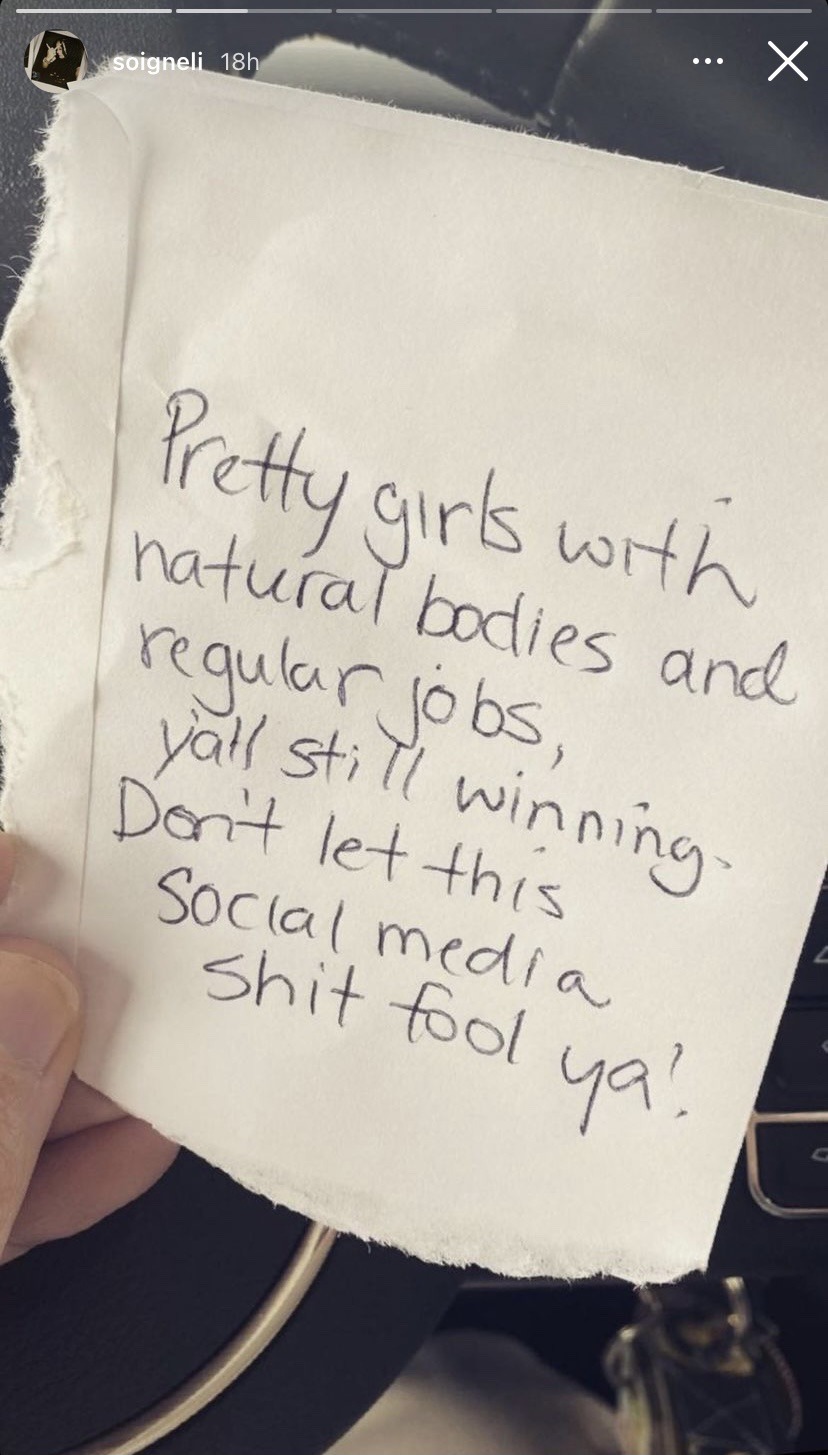 soigneli 18h
Pretty girls with
natural bodies and
regular jobs,
y'all still winning.
Don't let this
Social media
shit fool ya!